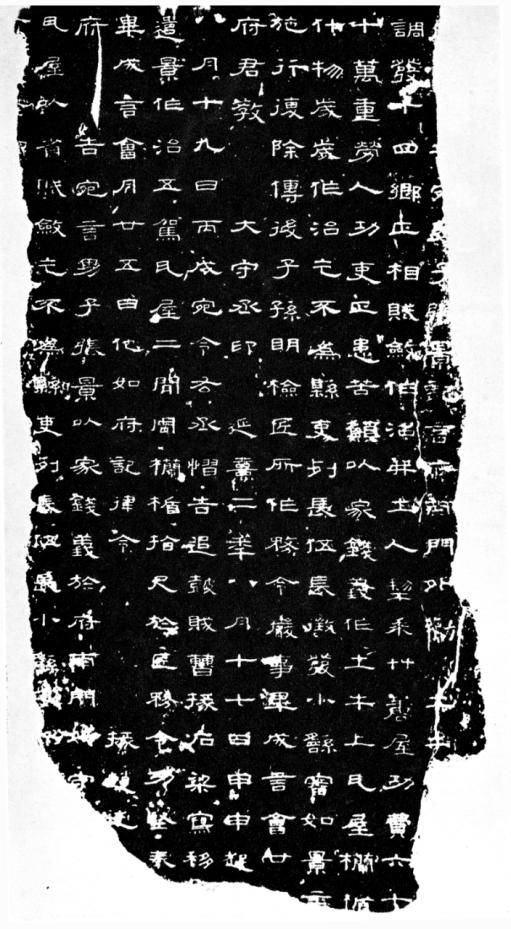 子張景記言府南門外勸土牛
調發十四鄉正相賦斂作治并土人犁耒艸蓑屋功費六七
十萬重勞人功吏正患苦願以家錢義作土牛上瓦屋欄楯
什物歲歲作治乞不為縣吏列長伍長徵發小繇審如景言
施行復除傳後子孫明檢匠所作務令嚴事畢成言會廿
府君教 大守丞印 延熹二年八月十七日甲申起
八月十九日丙戌宛令右丞慴告追鼓賊曹掾石梁寫移
遣景作治五駕瓦屋二閒周欄楯拾尺於匠務令功堅奉
畢成言會月廿五日他如府記律令 掾趙述
府告宛言男子張景以家錢義於府南門外守
瓦屋以省賦斂乞不為縣吏列長伍長小繇